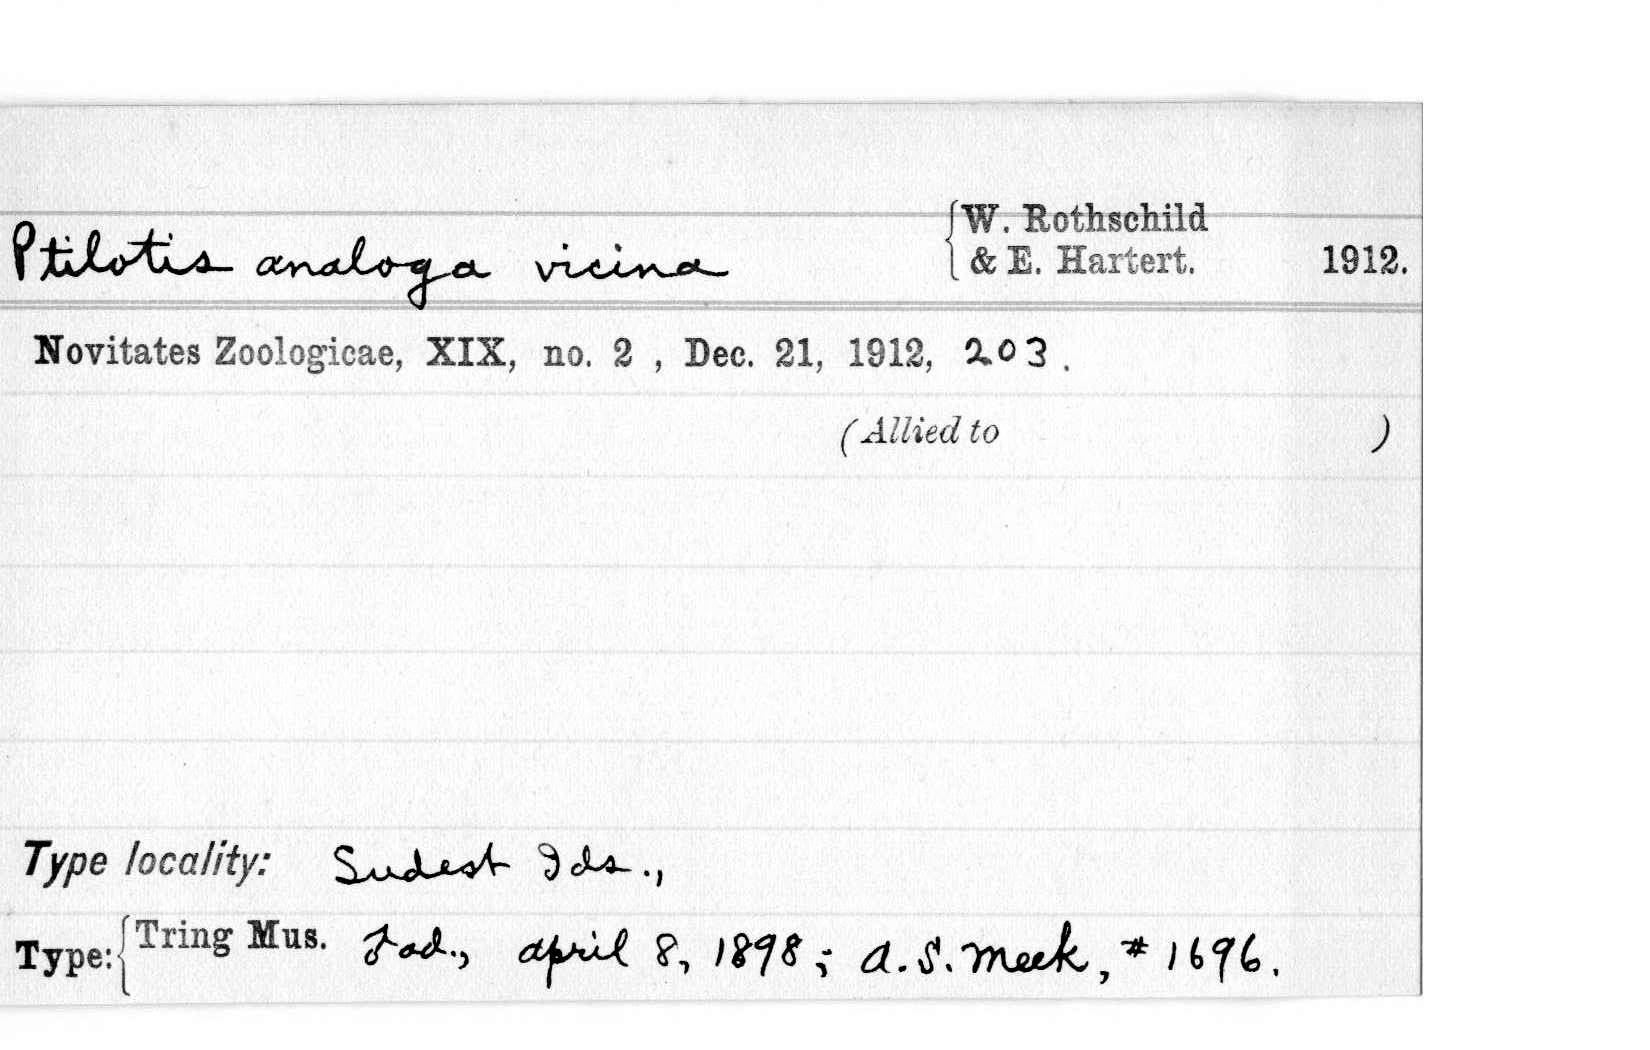 Ptilotis analoga vicina { W. Rothschild
& E. Hartert. 1912.
Novitates Zoologicae, XIX, no. 2 , Dec. 21, 1912, 203 .
(Allied to )
Type locality: Sudest Ids.,
Type: { Tring Mus. ♂ ad., April 8, 1898; A.S. Meek, # 1696.